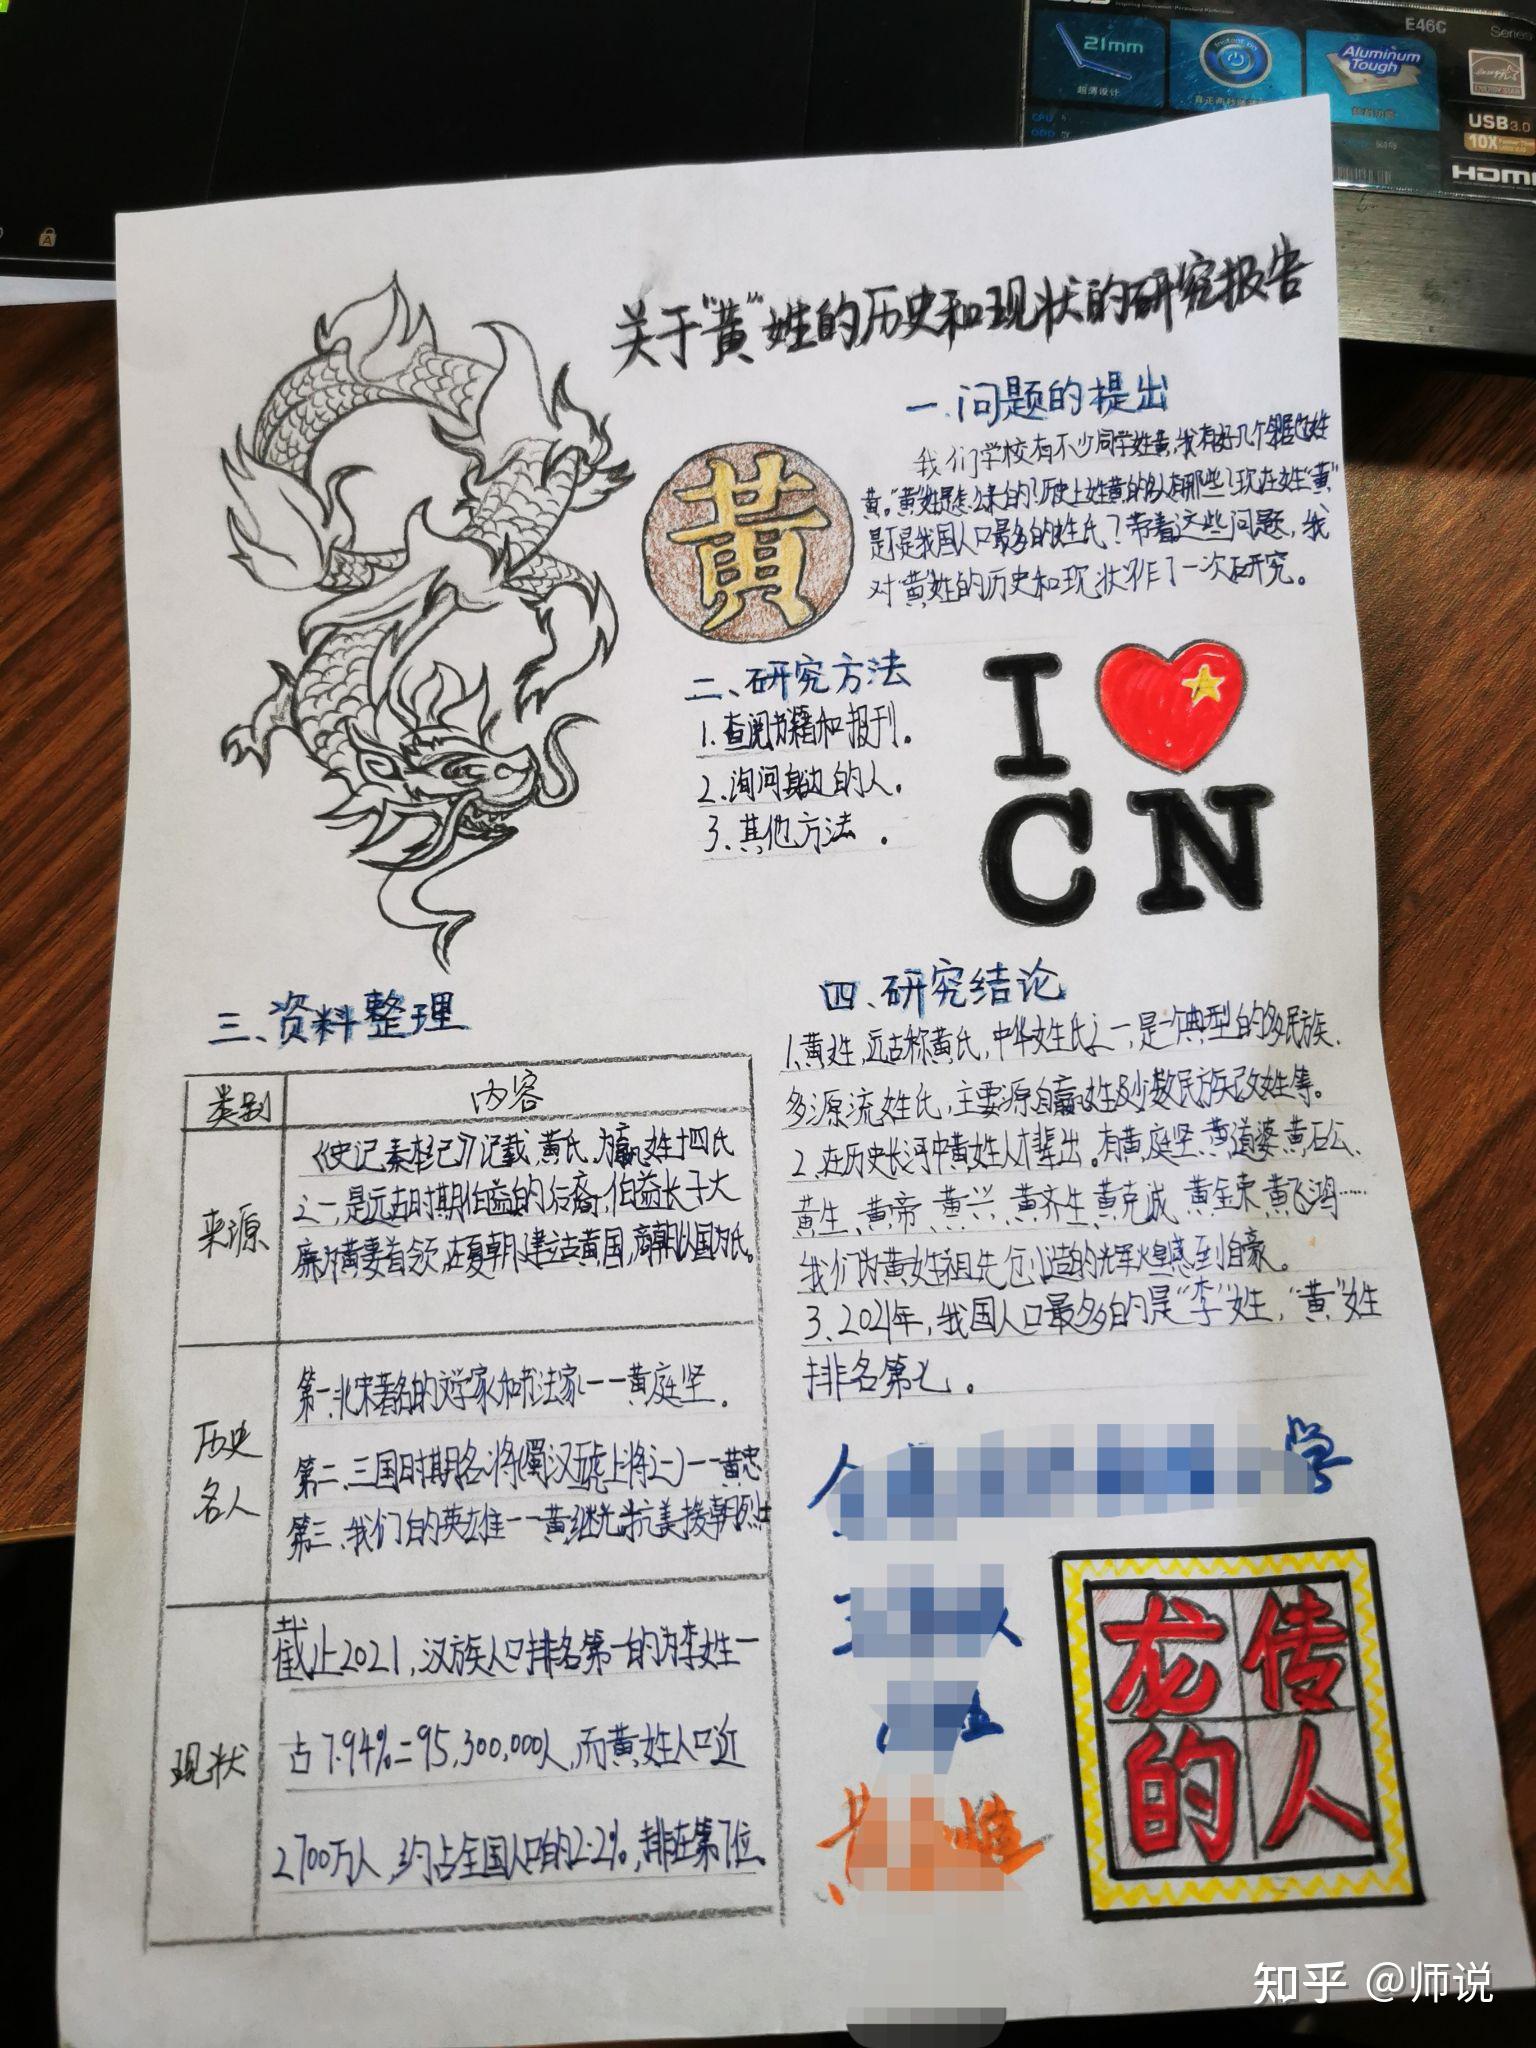 E46C
Series
21mm
超薄设计
Instant on
Aluminum
Tough
USB3.0
10X
HDMI
关于"黄"姓的历史和现状的研究报告
一.问题的提出
我们学校有不少同学姓黄,我有好几个邻居也姓
黄。"黄"姓是怎么来的?历史上姓黄的名人有哪些?现在姓"黄"
是不是我国人口最多的姓氏?带着这些问题,我
对"黄"姓的历史和现状作了一次研究。
黄
二、研究方法
1.查阅书籍和报刊。
2.询问身边的人。
3、其他方法。
I
CN
三、资料整理
类别 内容
来源
《史记秦本纪》记载,黄氏,为嬴姓十四氏
之一,是远古时期伯益的后裔,伯益长子大
廉为黄夷首领,在夏朝建立古黄国,商朝以国为氏。
历史
名人
第一、北宋著名的文学家和书法家——黄庭坚。
第二、三国时期名将(蜀汉五虎上将之一)——黄忠
第三、我们的英雄——黄继光 抗美援朝烈士
现状
截止2021,汉族人口排名第一的为李姓一
占7.94%=95,300,000人,而黄姓人口近
2700万人,约占全国人口的2.2%,排在第7位。
四、研究结论
1、黄姓,远古称黄氏,中华姓氏之一,是一个典型的多民族、
多源流姓氏,主要源自嬴姓及少数民族改姓等。
2、在历史长河中黄姓人才辈出。有黄庭坚、黄道婆、黄石公、
黄生、黄帝、黄兴、黄齐生、黄克诚、黄金荣、黄飞鸿……
我们为黄姓祖先创造的辉煌感到自豪。
3、2021年,我国人口最多的是"李"姓,"黄"姓
排名第七。
学
龙传
的人
知乎 @师说